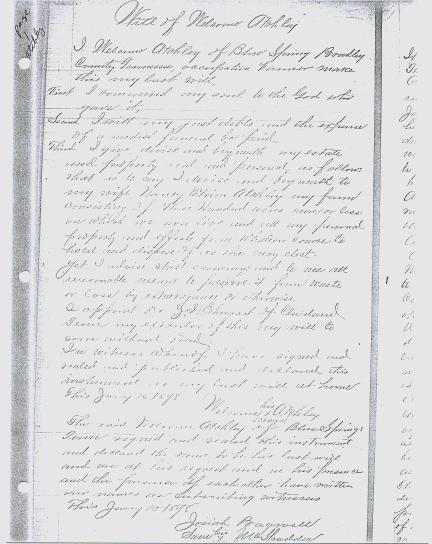 Will of Welcome Ashley
I Welcome Ashley of Blue Spring Bradley
County Tennessee, occupation Farmer make
this my last will
First I commend my soul to the God who
gave it
Second I will my just debts and the expense
of a modest funeral be paid
Third I give devise and bequeath my estate
and property real and personal as follows
that is to say I devise and bequeath to
my wife Nancy Ashley my farm
consisting of Three Hundred acres more or less
on which we now live and all my personal
property and effects from
hold and dispose of as she may elect
Yet I advise strict economy and to use all
reasonable means to preserve it from waste
or loss by extravagance or otherwise
I appoint of Cleveland
Tenn my executor of this my will to
serve without bond
In witness whereof I have signed and
sealed and published and declared this
instrument as my last will at home
This Jany 12 1898
Welcome his Ashley
mark
The said Welcome Ashley of Blue Springs
Tenn signed and sealed this instrument
and declared the same to be his last will
and we at his request and in his presence
and the presence of each other have written
our names as subscribing witnesses
This Jany 12 1898
Josiah Bagwell